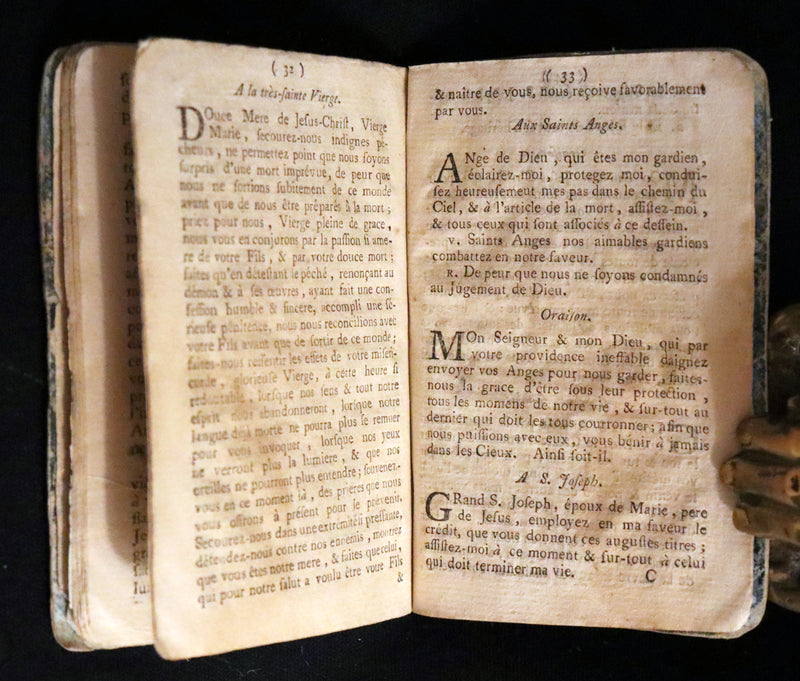 ( 32 )
A la très-sainte Vierge.
DOuce Mere de Jesus-Chriſt, Vierge
Marie, ſecourez-nous indignes pé-
cheurs, ne permettez point que nous ſoyons
ſurpris d'une mort imprévue, de peur que
nous ne ſortions ſubitement de ce monde
avant que de nous être préparés à la mort ;
priez pour nous, Vierge pleine de grace,
nous vous en conjurons par la paſſion ſi ame-
re de votre Fils, & par votre douce mort ;
faites qu'en déteſtant le péché, renonçant au
démon & à ſes œuvres, ayant fait une con-
feſſion humble & ſincere, accompli une ſé-
rieuſe pénitence, nous nous reconcilions avec
votre Fils avant que de ſortir de ce monde ;
faites-nous reſſentir les effets de votre miſeri-
corde, glorieuſe Vierge, à cette heure ſi
redoutable, lorſque nos ſens & tout notre
eſprit nous abandonneront, lorſque notre
langue déja morte ne pourra plus ſe remuer
pour vous invoquer, lorſque nos yeux
ne verront plus la lumiere, & que nos
oreilles ne pourront plus entendre ; ſouvenez-
vous en ce moment là, des prieres que nous
vous offrons à préſent pour le prévenir.
Secourez-nous dans une extrêmité ſi preſſante,
défendez-nous contre nos ennemis, montrez
que vous êtes notre mere, & faites que celui,
qui pour notre ſalut a voulu être votre Fils
&
( 33 )
& naître de vous, nous reçoive favorablement
par vous.
Aux Saints Anges.
ANge de Dieu, qui êtes mon gardien,
éclairez-moi, protegez moi, condui-
ſez heureuſement mes pas dans le chemin du
Ciel, & à l'article de la mort, aſſiſtez-moi,
& tous ceux qui ſont aſſociés à ce deſſein.
V. Saints Anges nos aimables gardiens
combattez en notre faveur.
R. De peur que nous ne ſoyons condamnés
au Jugement de Dieu.
Oraiſon.
MOn Seigneur & mon Dieu, qui par
votre providence ineffable daignez
envoyer vos Anges pour nous garder, faites-
nous la grace d'être ſous leur protection,
tous les momens de notre vie, & ſur-tout au
dernier qui doit les tous courronner ; afin que
nous puiſſions avec eux, vous bénir à jamais
dans les Cieux. Ainſi ſoit-il.
A S. Joſeph.
GRand S. Joſeph, époux de Marie, pere
de Jeſus, employez en ma faveur le
crédit, que vous donnent ces auguſtes titres ;
aſſiſtez-moi à ce moment & ſur-tout à celui
qui doit terminer ma vie.
C